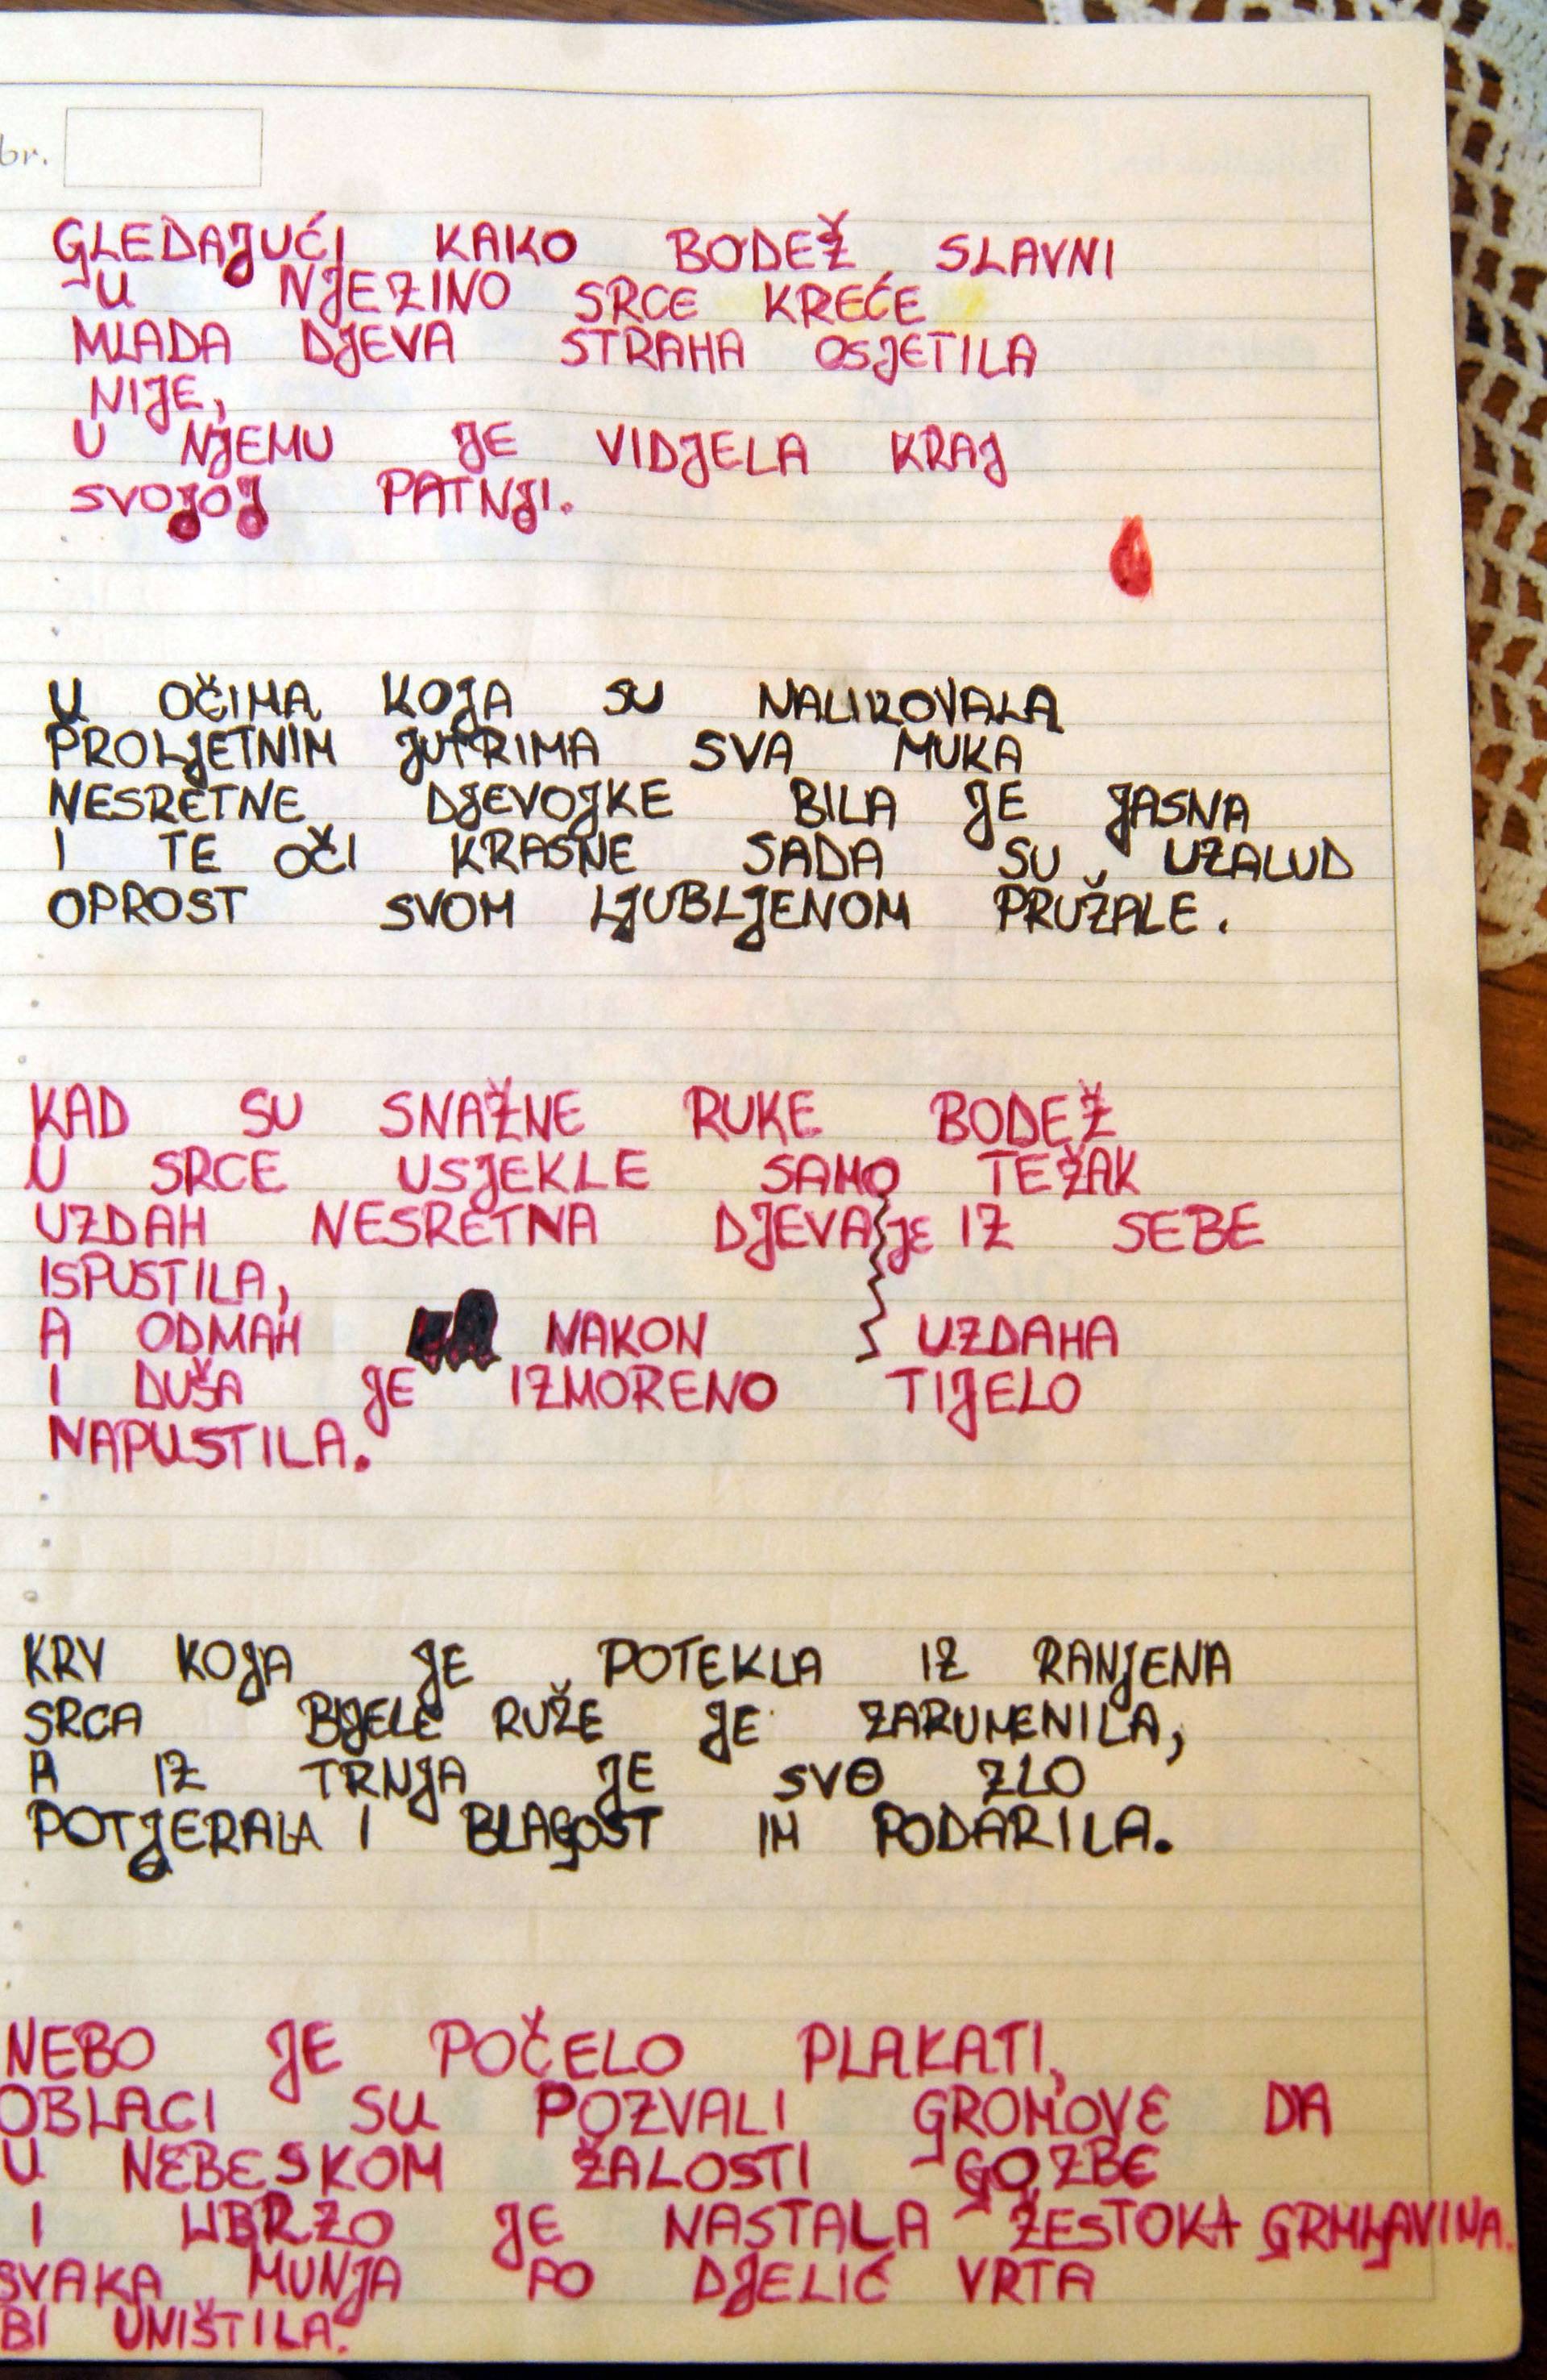 br.
GLEDAJUĆI KAKO BODEŽ SLAVNI
U NJEZINO SRCE KREĆE
MLADA DJEVA STRAHA OSJETILA
NIJE,
U NJEMU JE VIDJELA KRAJ
SVOJOJ PATNJI.
U OČIMA KOJA SU NALIKOVALA
PROLJETNIM JUTRIMA SVA MUKA
NESRETNE DJEVOJKE BILA JE JASNA
I TE OČI KRASNE SADA SU UZALUD
OPROST SVOM LJUBLJENOM PRUŽALE.
KAD SU SNAŽNE RUKE BODEŽ
U SRCE USJEKLE SAMO TEŽAK
UZDAH NESRETNA DJEVA JE IZ SEBE
ISPUSTILA,
A ODMAH NAKON UZDAHA
I DUŠA JE IZMORENO TIJELO
NAPUSTILA.
KRV KOJA JE POTEKLA IZ RANJENA
SRCA BIJELE RUŽE JE ZARUMENILA,
A IZ TRNJA JE SVO ZLO
POTJERALA I BLAGOST IM PODARILA.
NEBO JE POČELO PLAKATI,
OBLACI SU POZVALI GROMOVE DA
U NEBESKOM ŽALOSTI GOZBE
I UBRZO JE NASTALA ŽESTOKA GRMLJAVINA.
SVAKA MUNJA PO DJELIĆ VRTA
BI UNIŠTILA.